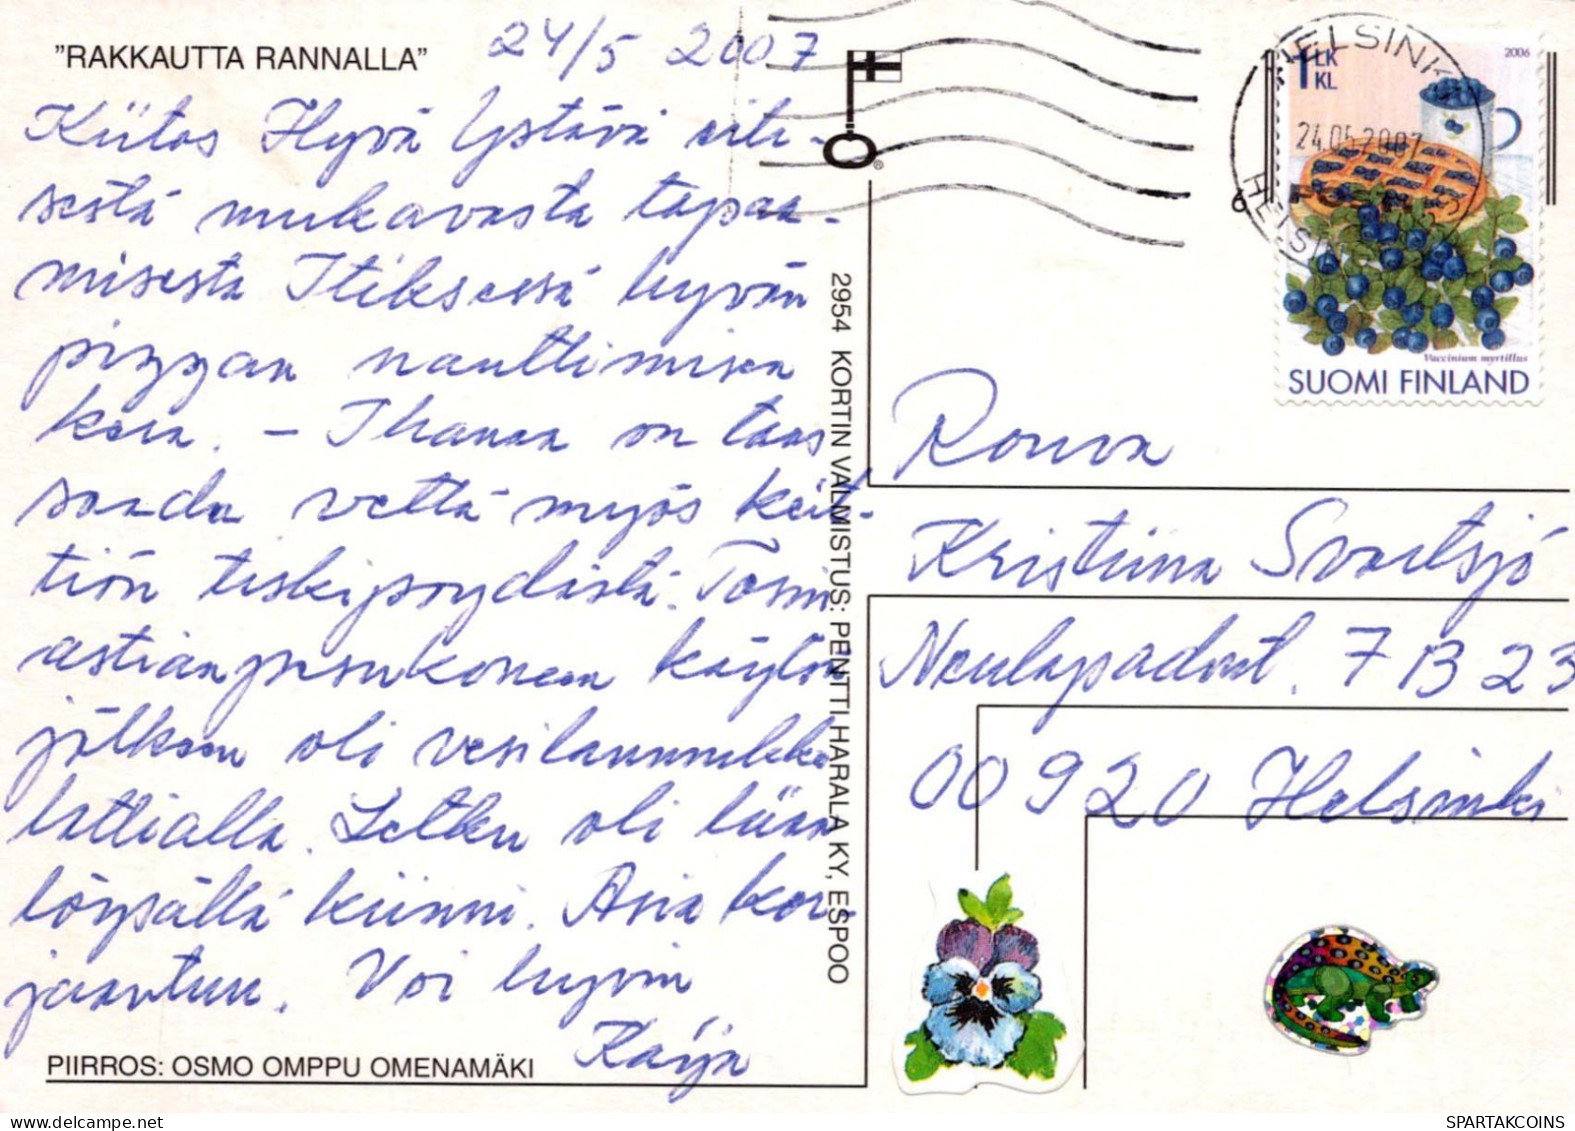 "RAKKAUTTA RANNALLA"
24/5 2007
Kiitos Hyvä Ystävä eili-
sestä mukavasta tapaa-
misesta Itiksessä hyvän
pizzan nauttimisen
kera. – Ihanaa on taas
saada vettä myös keit-
tiön tiskipöydästä. Toisin
astianpesukoneen käytön
jälkeen oli vesilammikko
lattialla. Letku oli liian
löysällä kiinni. Asia kor-
jaantuu. Voi hyvin
Kaija
PIIRROS: OSMO OMPPU OMENAMÄKI
2954 KORTIN VALMISTUS: PENTTI HARALA KY, ESPOO
®
HELSINKI
24.05.2007
6
1 LK
KL
2006
Vaccinium myrtillus
SUOMI FINLAND
Rouva
Kristiina Svartsjö
Neulapadont. 7 B 23
00920 Helsinki
SPARTAKCOINS.COM